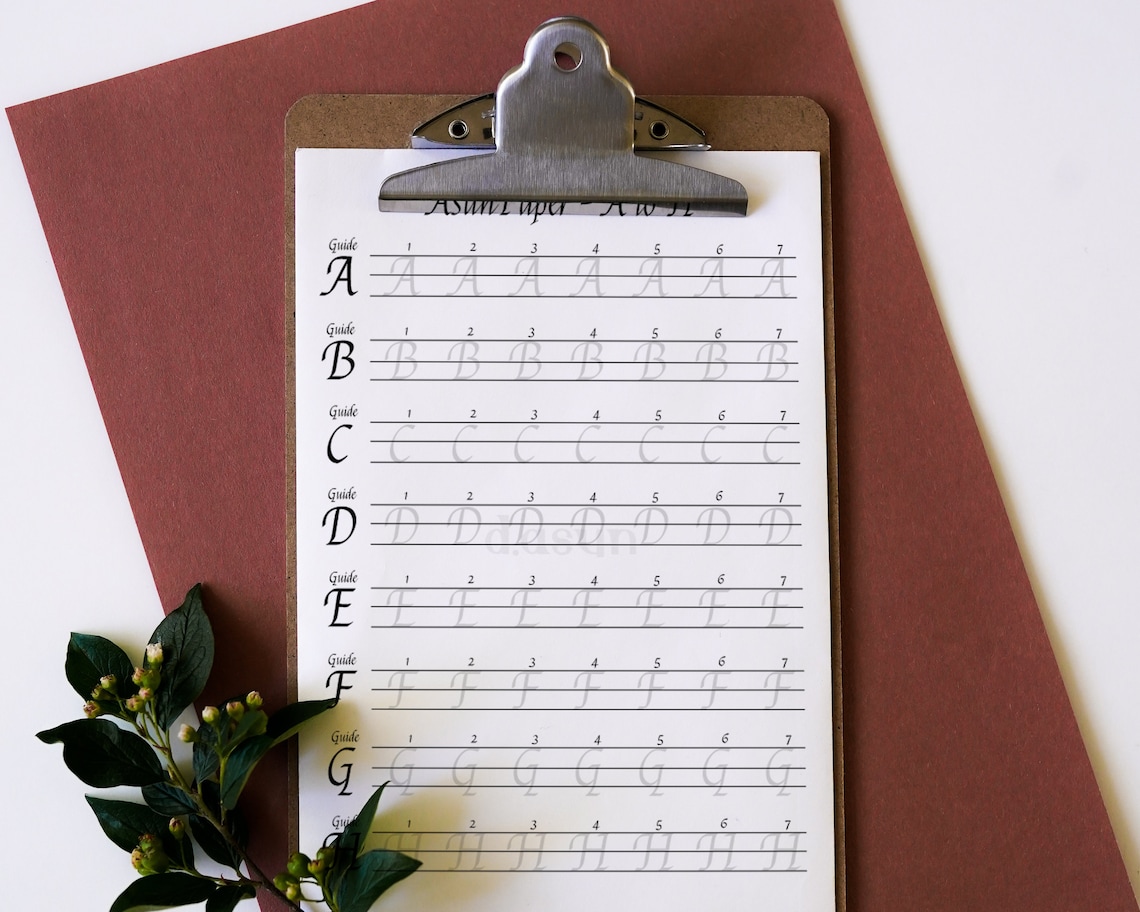 AsunPaper - A to H
Guide 1 2 3 4 5 6 7
A A A A A A A A
Guide 1 2 3 4 5 6 7
B B B B B B B B
Guide 1 2 3 4 5 6 7
C C C C C C C C
Guide 1 2 3 4 5 6 7
D D D D D D D D
d.asun
Guide 1 2 3 4 5 6 7
E E E E E E E E
Guide 1 2 3 4 5 6 7
F F F F F F F F
Guide 1 2 3 4 5 6 7
G G G G G G G G
Guide 1 2 3 4 5 6 7
H H H H H H H H